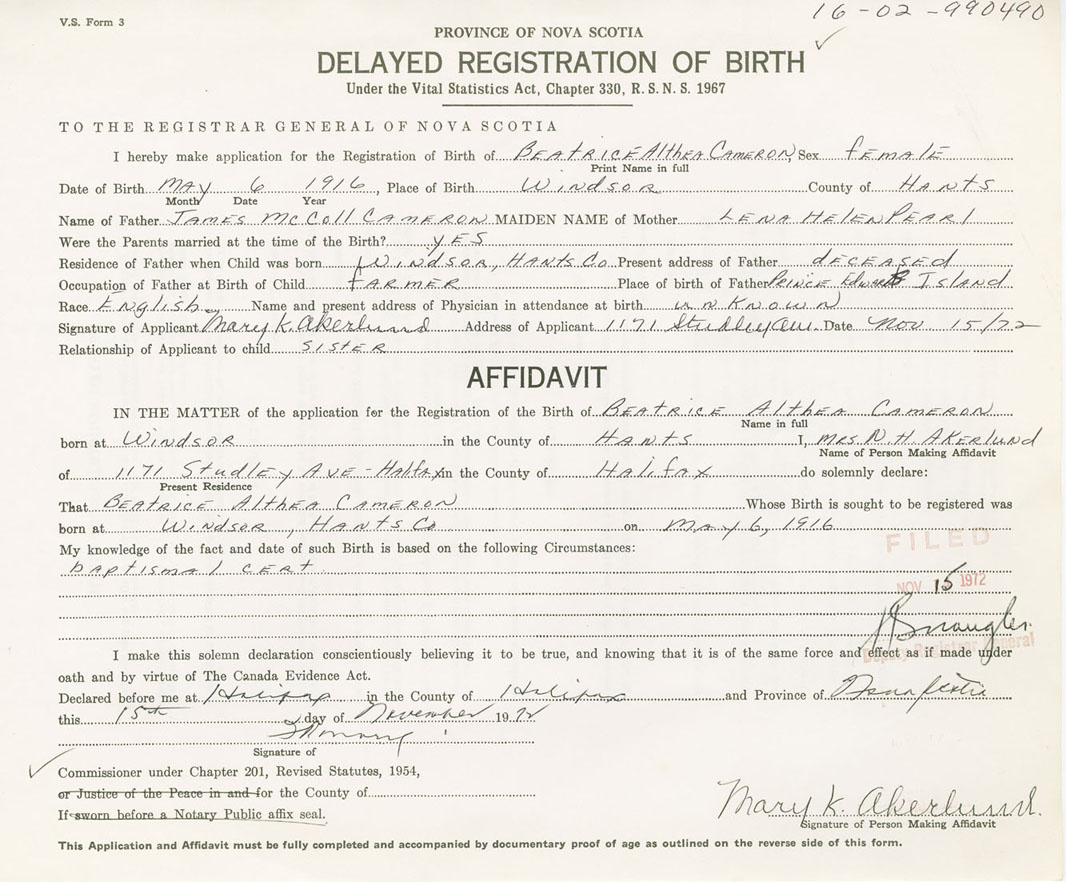 V.S. Form 3
16-02-990490
PROVINCE OF NOVA SCOTIA
DELAYED REGISTRATION OF BIRTH
Under the Vital Statistics Act, Chapter 330, R.S.N.S. 1967
TO THE REGISTRAR GENERAL OF NOVA SCOTIA
I hereby make application for the Registration of Birth of Beatrice Althea Cameron, Sex female
Print Name in full
Date of Birth May 6 1916, Place of Birth Windsor County of Hants
Month Date Year
Name of Father James McColl Cameron MAIDEN NAME of Mother Lena Helen Pearl
Were the Parents married at the time of the Birth? yes
Residence of Father when Child was born Windsor, Hants Co Present address of Father deceased
Occupation of Father at Birth of Child farmer Place of birth of Father Prince Edward Island
Race English Name and present address of Physician in attendance at birth unknown
Signature of Applicant Mary K. Akerlund Address of Applicant 1171 Studley Ave. Date Nov 15/72
Relationship of Applicant to child sister
AFFIDAVIT
IN THE MATTER of the application for the Registration of the Birth of Beatrice Althea Cameron
Name in full
born at Windsor in the County of Hants I, Mrs. N. H. Akerlund
Name of Person Making Affidavit
of 1171 Studley Ave - Halifax in the County of Halifax do solemnly declare:
Present Residence
That Beatrice Althea Cameron Whose Birth is sought to be registered was
born at Windsor, Hants Co on May 6, 1916
My knowledge of the fact and date of such Birth is based on the following Circumstances:
baptismal cert
FILED
NOV 15 1972
Deputy Registrar General
I make this solemn declaration conscientiously believing it to be true, and knowing that it is of the same force and effect as if made under
oath and by virtue of The Canada Evidence Act.
Declared before me at Halifax in the County of Halifax and Province of Nova Scotia
this 15th day of November 1972
Signature of
Commissioner under Chapter 201, Revised Statutes, 1954,
or Justice of the Peace in and for the County of
If sworn before a Notary Public affix seal.
Mary K. Akerlund.
Signature of Person Making Affidavit
This Application and Affidavit must be fully completed and accompanied by documentary proof of age as outlined on the reverse side of this form.